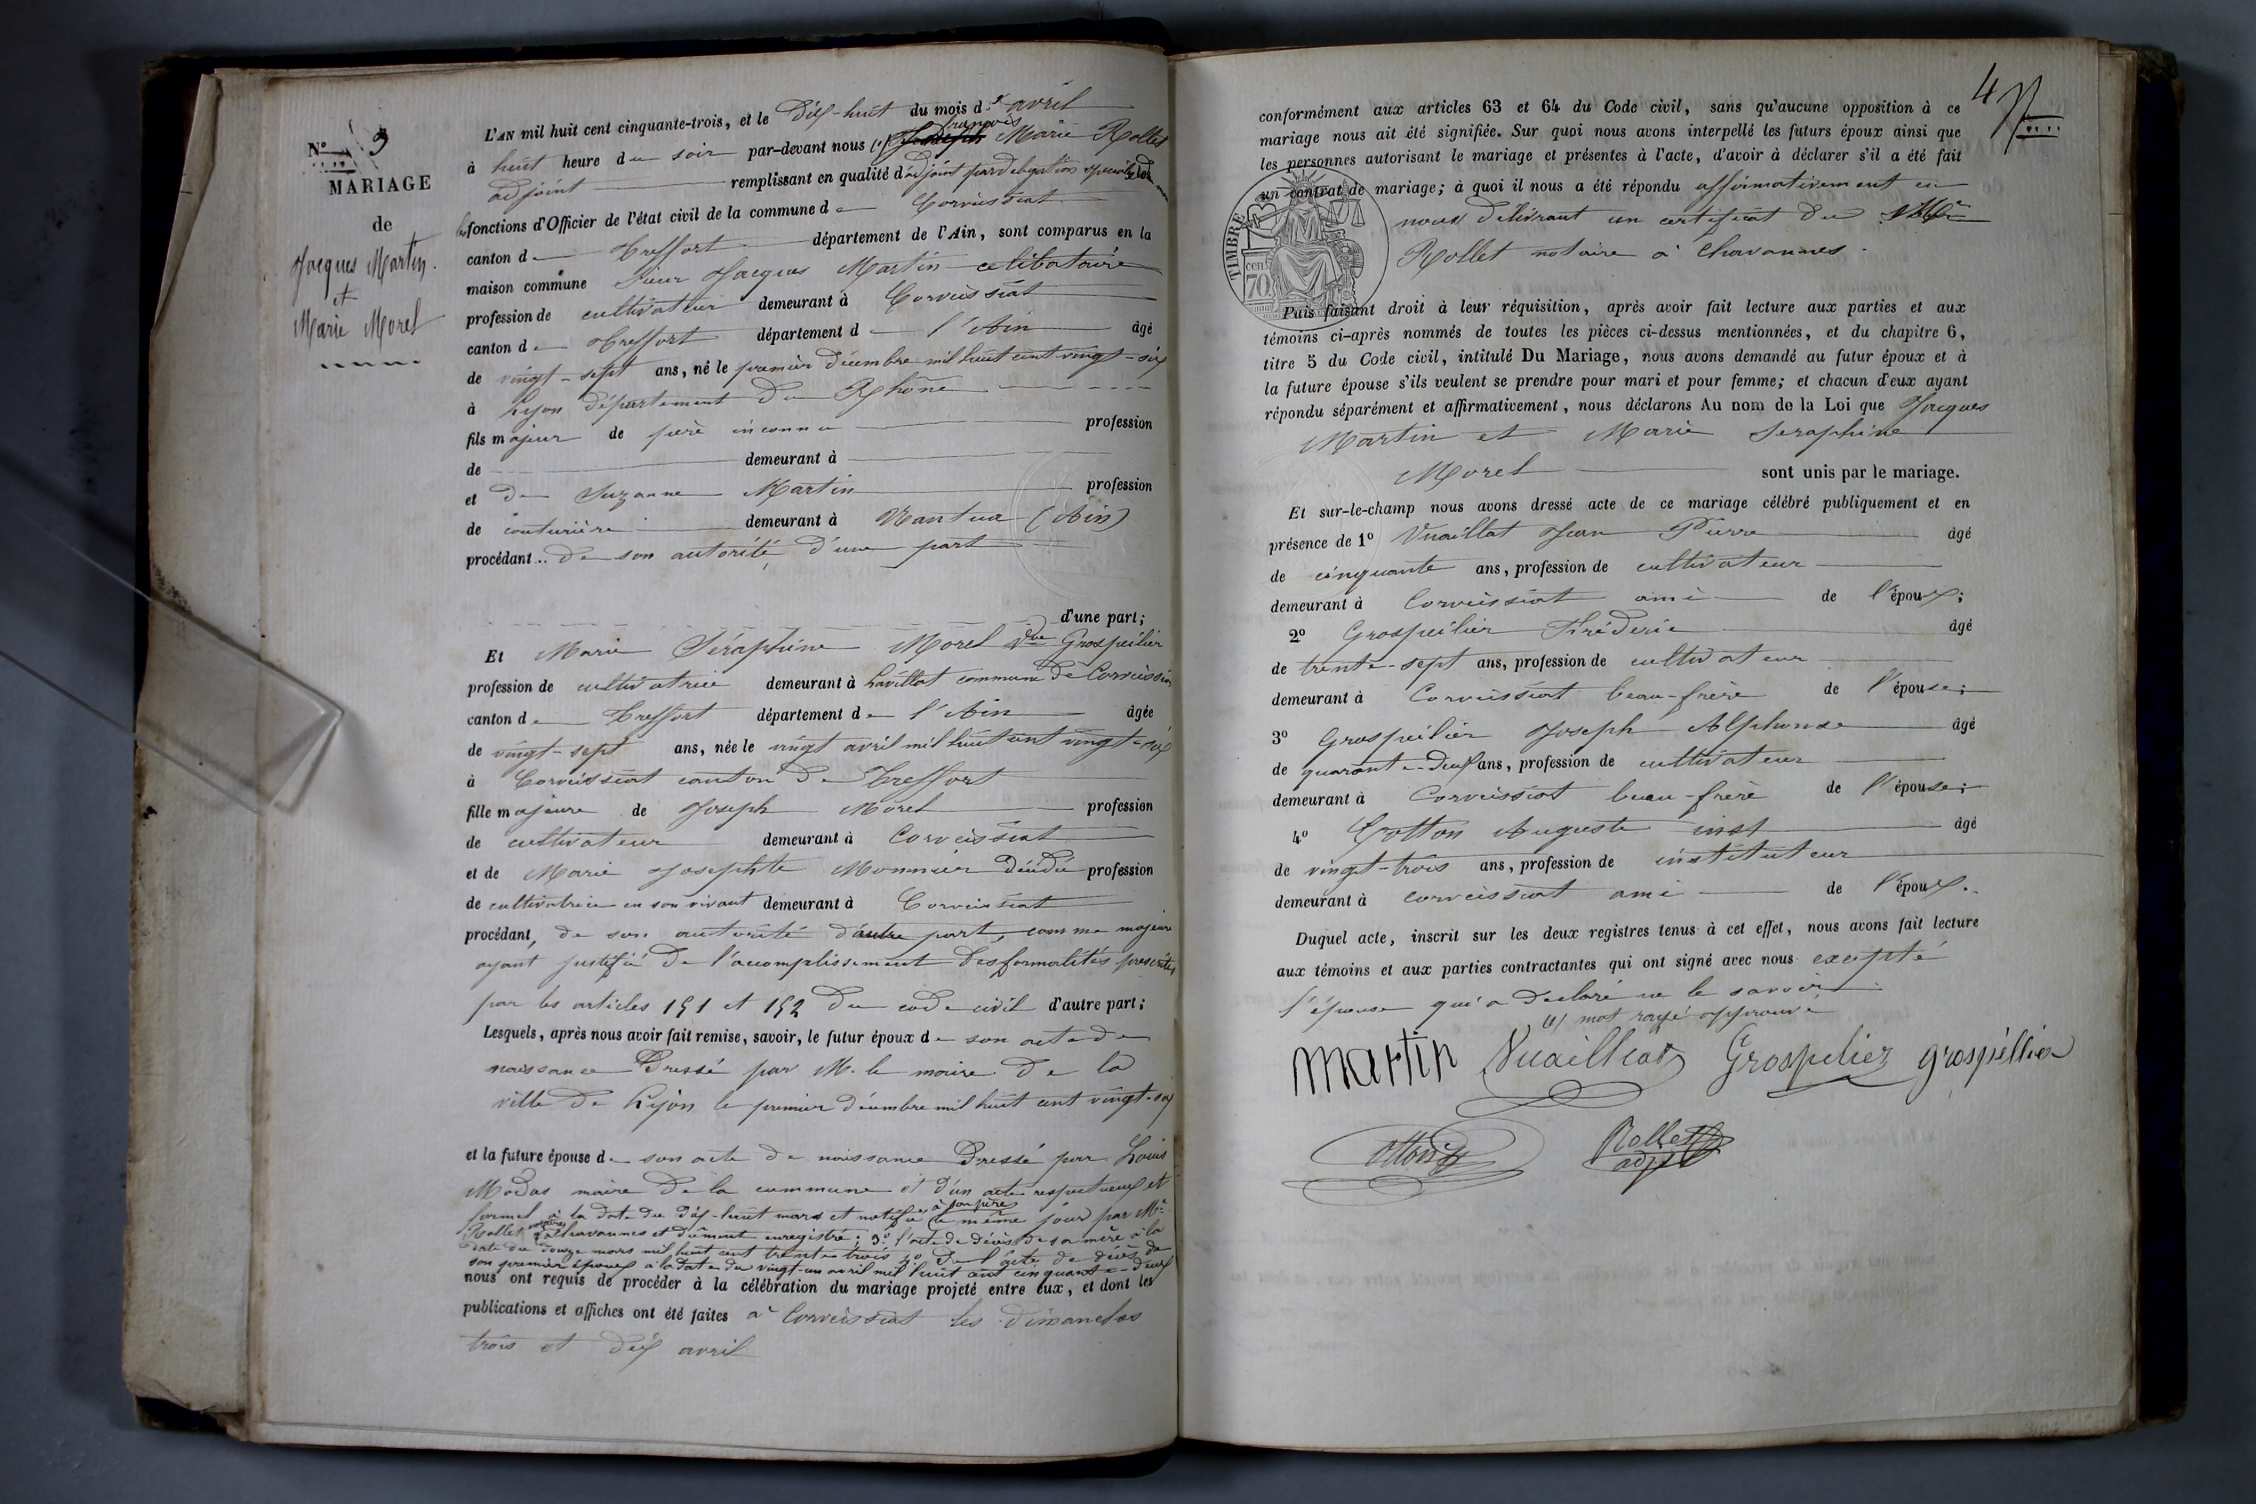 N° 3
MARIAGE
de
Jacques Martin
et
Marie Morel
L'AN mil huit cent cinquante-trois, et le Dix-huit du mois d'avril
à huit heure du soir par-devant nous (1) Joseph françois Marie Rollet
adjoint remplissant en qualité d'adjoint par délégation spéciale les
fonctions d'Officier de l'état civil de la commune de Corveissiat
canton de Treffort département de l'Ain, sont comparus en la
maison commune Sieur Jacques Martin celibataire
profession de cultivateur demeurant à Corveissiat
canton de Treffort département de l'Ain âgé
de vingt-sept ans, né le premier décembre mil huit cent vingt-six
à Lyon département du Rhône
fils majeur de père inconnu profession
de demeurant à
et de Suzanne Martin profession
de couturière demeurant à Nantua (Ain)
procédant de son autorité, d'une part
d'une part;
Et Marie Séraphine Morel Vve Grospeilier
profession de cultivatrice demeurant à Lavillat commune de Corveissiat
canton de Treffort département de l'Ain âgée
de vingt-sept ans, née le vingt avril mil huit cent vingt-six
à Corveissiat canton de Treffort
fille majeure de Joseph Morel profession
de cultivateur demeurant à Corveissiat
et de Marie Josephte Monnier décédée profession
de cultivatrice en son vivant demeurant à Corveissiat
procédant, de son autorité d'autre part, comme majeure
ayant justifié de l'accomplissement des formalités prescrites
par les articles 151 et 152 du code civil d'autre part;
Lesquels, après nous avoir fait remise, savoir, le futur époux de son acte de
naissance Dressé par M. le maire de la
ville de Lyon le premier décembre mil huit cent vingt-six
et la future épouse de son acte de naissance Dressé par Louis
Modas maire de la commune et d'un acte respectueux et
formel à la date du dix-huit mars et notifié à son père le même jour par Me
Rollet notaire à Chavannes et dûment enregistré; 3° l'acte de décès de sa mère à la
date du douze mars mil huit cent trente trois 4° de l'acte de décès de
son premier époux à la date du vingt-un avril mil huit cent cinquante-deux
nous ont requis de procéder à la célébration du mariage projeté entre eux, et dont les
publications et affiches ont été faites à Corveissiat les dimanches
trois et dix avril
4
conformément aux articles 63 et 64 du Code civil, sans qu'aucune opposition à ce
mariage nous ait été signifiée. Sur quoi nous avons interpellé les futurs époux ainsi que
les personnes autorisant le mariage et présentes à l'acte, d'avoir à déclarer s'il a été fait
un contrat de mariage; à quoi il nous a été répondu affirmativement en
nous délivrant un certificat de Me
Rollet notaire à Chavannes.
TIMBRE
cen.
70
Puis faisant droit à leur réquisition, après avoir fait lecture aux parties et aux
témoins ci-après nommés de toutes les pièces ci-dessus mentionnées, et du chapitre 6,
titre 5 du Code civil, intitulé Du Mariage, nous avons demandé au futur époux et à
la future épouse s'ils veulent se prendre pour mari et pour femme; et chacun d'eux ayant
répondu séparément et affirmativement, nous déclarons Au nom de la Loi que Jacques
Martin et Marie Seraphine
Morel sont unis par le mariage.
Et sur-le-champ nous avons dressé acte de ce mariage célébré publiquement et en
présence de 1° Vuaillat Jean Pierre âgé
de cinquante ans, profession de cultivateur
demeurant à Corveissiat ami de l'époux;
2° Grospeilier Fréderic âgé
de trente-sept ans, profession de cultivateur
demeurant à Corveissiat beau-frère de l'épouse;
3° Grospeilier Joseph Alphonse âgé
de quarante-deux ans, profession de cultivateur
demeurant à Corveissiat beau-frère de l'épouse;
4° Cotton Auguste inst âgé
de vingt-trois ans, profession de instituteur
demeurant à corveissiat ami de l'époux.
Duquel acte, inscrit sur les deux registres tenus à cet effet, nous avons fait lecture
aux témoins et aux parties contractantes qui ont signé avec nous excepté
l'épouse qui a declaré ne le savoir.
(1) mot rayé approuvé
Martin Vuaillat Grospelier grospellier
Rollet
adjt